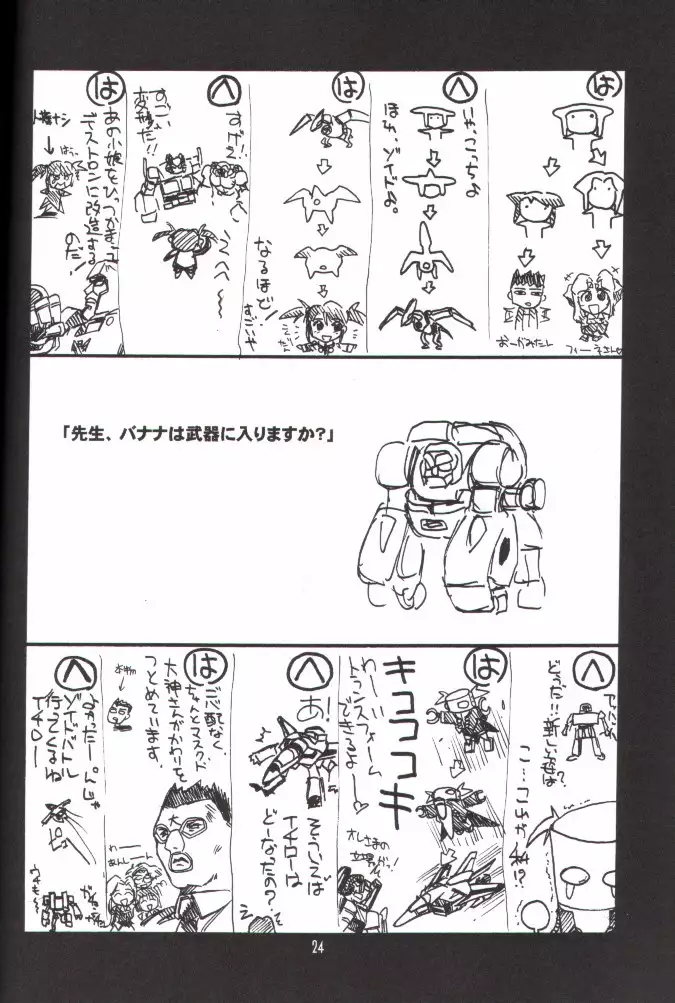 は
おーがみたん
フィーネさん
へ
いや、こっちよ
ほれ、ゾイドよ。
は
なるほど!
すごいや
へ
すげぇ!
すごい
変形だ!!
は
あの小娘をひっつかまえて
デストロンに改造する
のだ!
「先生、バナナは武器に入りますか?」
へ
どうだ!!新しい姿は?
こ…これが私!?
は
キュココキ
わーいトランスフォーム
できるよー
オレさまの
立場が!
へ
あ!
そういえば
イチローは
どーなったの?
は
ご心配なく、
ちゃんとマスクド
大神さんがかわりを
つとめています。
大
へ
よかったー。んじゃ
ゾイドバトル
行ってくるね
イチロー
24